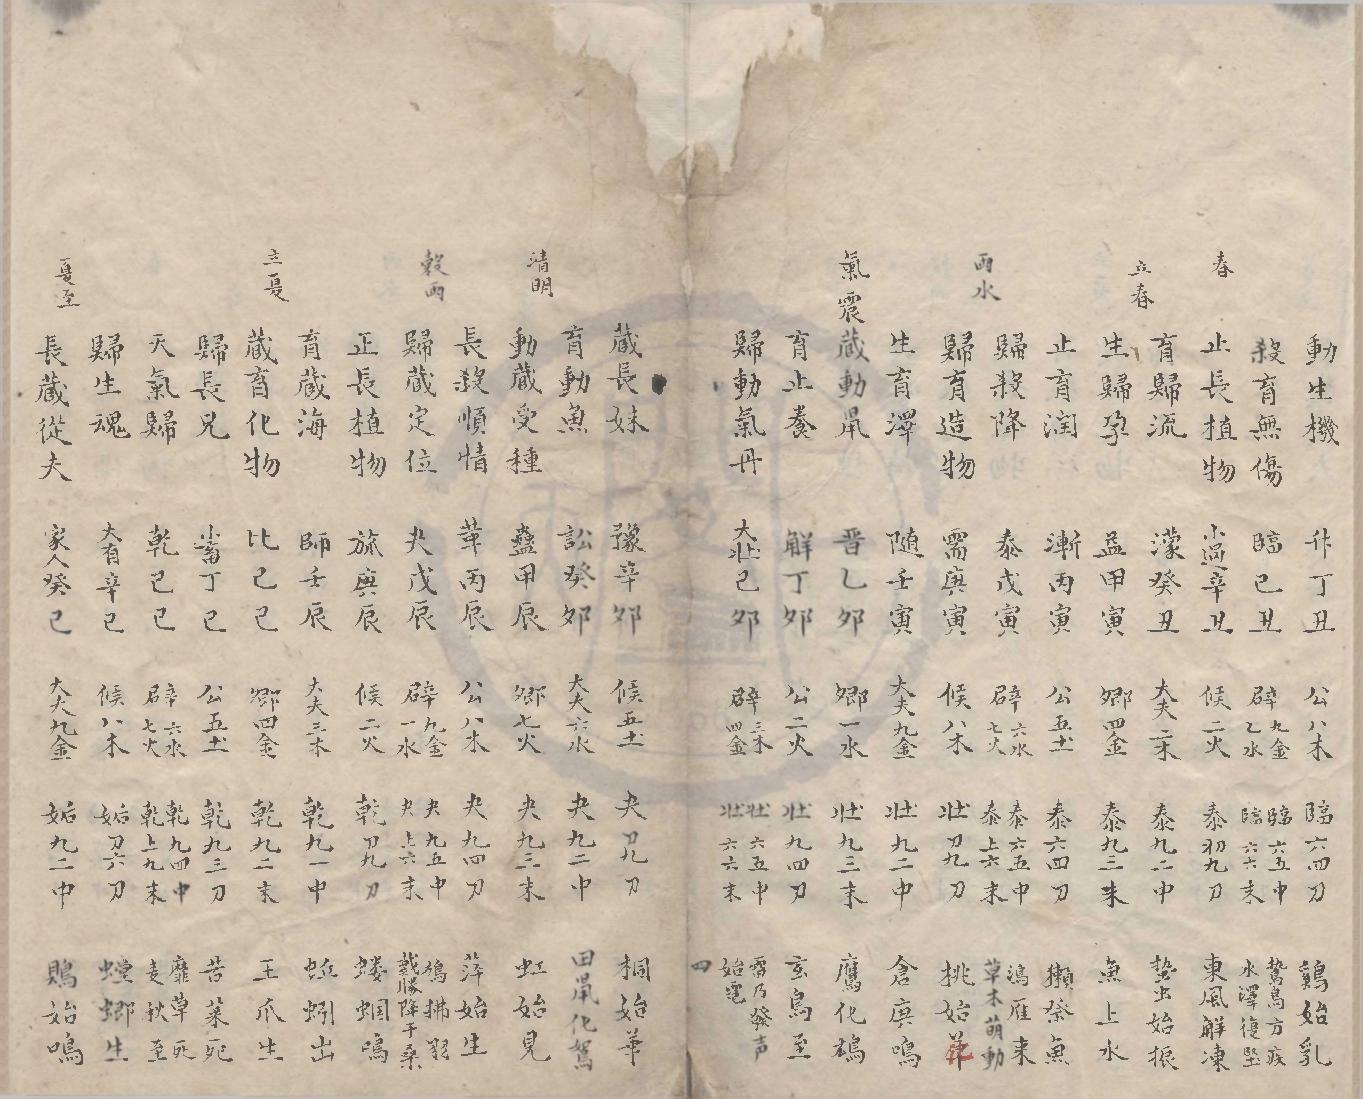 動生機　升丁丑　公八木　臨六四刀　鷄始乳
殺育無傷　臨己丑　辟九金乙水　臨六五中臨六六末　鷙鳥方疾水澤復堅
春　止長植物　小過辛丑　候二火　泰初九刀　東風解凍
育歸流　濛癸丑　大夫三木　泰九二中　蟄虫始振
立春　生歸孕　益甲寅　卿四金　泰九三末　魚上水
止育润　漸丙寅　公五土　泰六四刀　獺祭魚
歸殺降　泰戊寅　辟六水七火　泰六五中泰上六末　鴻雁来草木萌動
雨水　歸育造物　需庚寅　候八木　壯刀九刀　挑始花
生育澤　随壬寅　大夫九金　壯九二中　倉庚鳴
氣震　蔵動鼡　晋乙夘　卿一水　壯九三末　鷹化鵓
育止養　解丁夘　公二火　壯九四刀　玄鳥至
歸動氣丹　大壯己夘　辟三木四金　壯六五中壯六六末　雷乃發声始電
四
蔵長妹　豫辛夘　候五土　夬刀九刀　桐始華
育動魚　訟癸夘　大夫六水　夬九二中　田鼡化駕
清明　動蔵受種　蠱甲辰　卿七火　夬九三末　虹始見
長殺順情　革丙辰　公八木　夬九四刀　萍始生
榖雨　歸蔵定位　夬戊辰　辟九金一水　夬九五中夬上六末　鳩拂羽戴勝降于桑
正長植物　旅庚辰　候二火　乾刀九刀　螻蟈鳴
育蔵海　師壬辰　大夫三木　乾九一中　蚯蚓出
立夏　蔵育化物　比己巳　卿四金　乾九二末　王爪生
歸長兄　小畜丁巳　公五土　乾九三刀　苦菜死
天氣歸　乾己巳　辟六水七火　乾九四中乾上九末　靡草死麦秋至
歸生魂　大有辛巳　候八木　姤刀六刀　螳螂生
夏至　長蔵從夫　家人癸巳　大夫九金　姤九二中　鵙始鳴